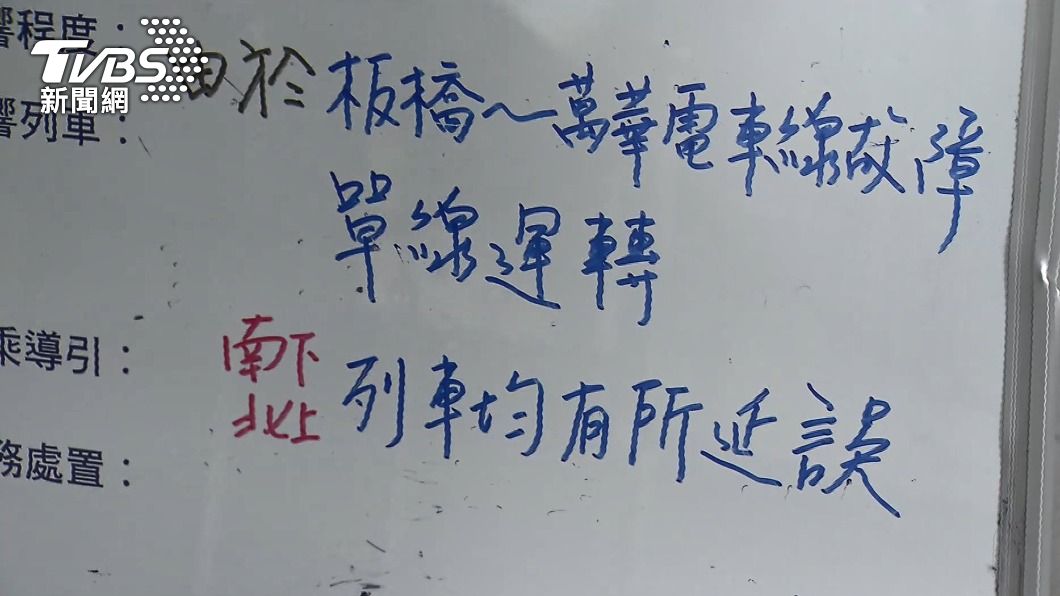 響程度：
TVBS
新聞網
由於板橋～萬華電車線故障
響列車：
單線運轉
乘導引：
南下
北上
列車均有所延誤
務處置：